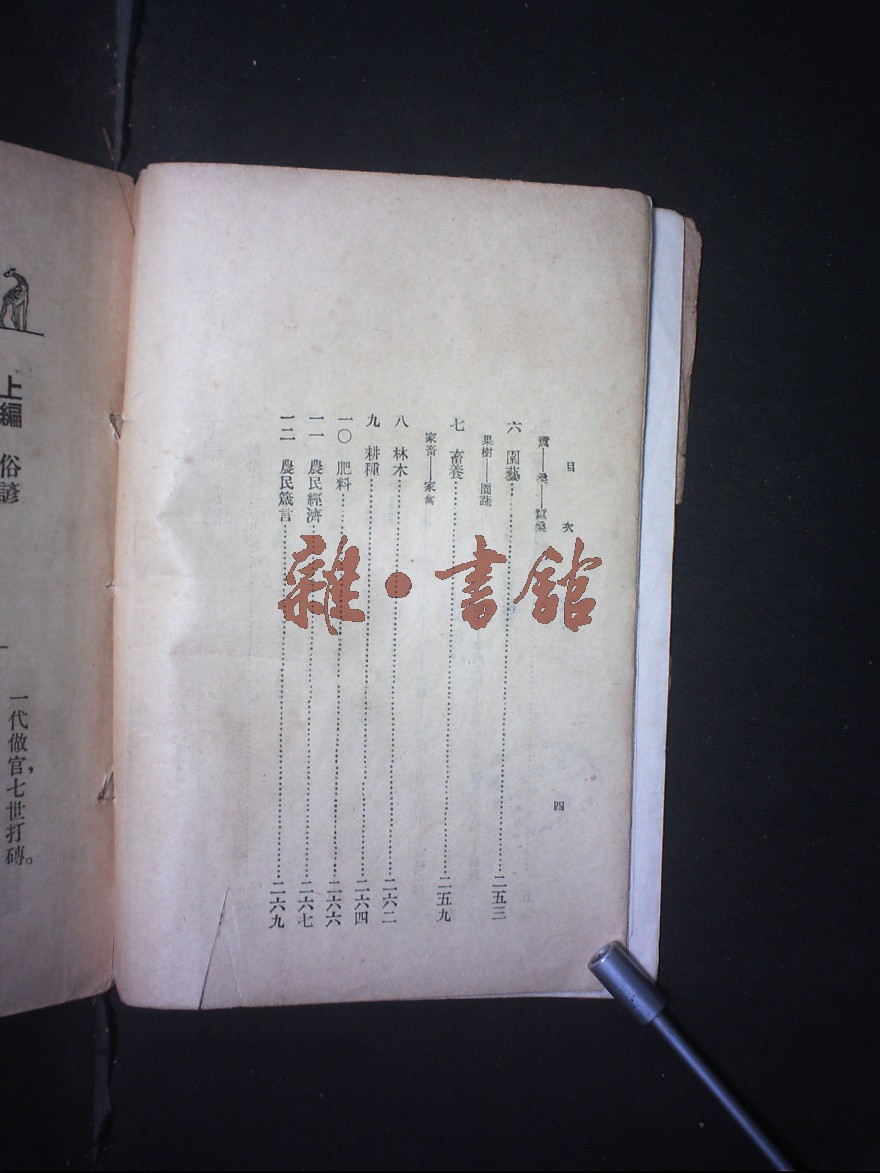 目次
四
六 園藝……二五三
果樹——園蔬
七 畜養……二五九
家畜——家禽
八 林木……二六二
九 耕種……二六四
一〇 肥料……二六六
一一 農民經濟……二六七
一二 農民箴言……二六九
雜·書館
上編 俗諺
一代做官，七世打磚。